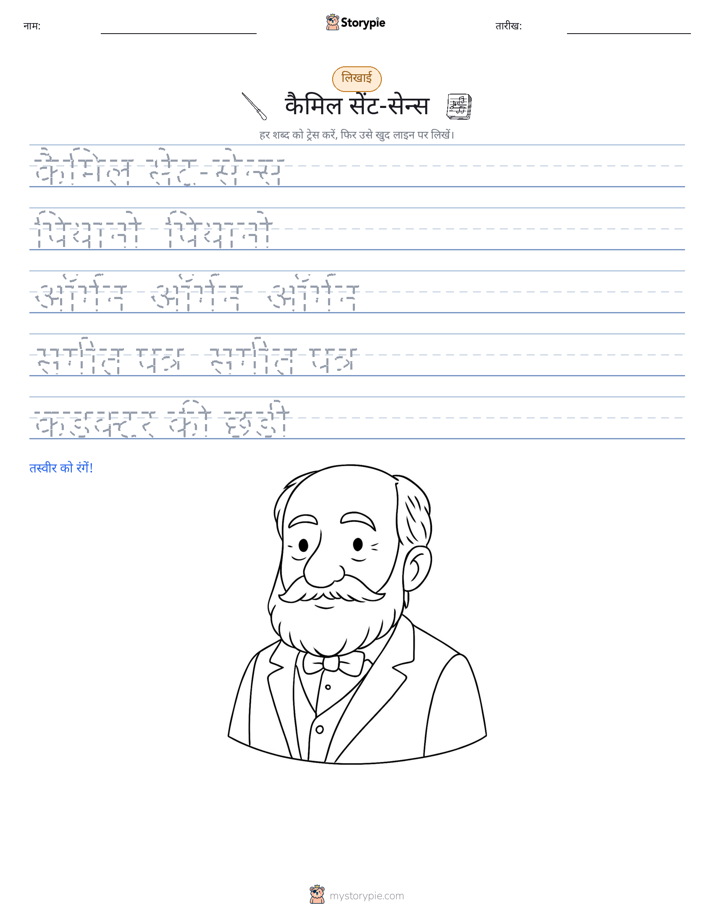 नाम:
Storypie
तारीख:
लिखाई
कैमिल सेंट-सेन्स
हर शब्द को ट्रेस करें, फिर उसे खुद लाइन पर लिखें।
कैमिल सेंट-सेन्स
पियानो पियानो
ऑर्गन ऑर्गन ऑर्गन
संगीत पत्र संगीत पत्र
कंडक्टर की छड़ी
तस्वीर को रंगें!
mystorypie.com